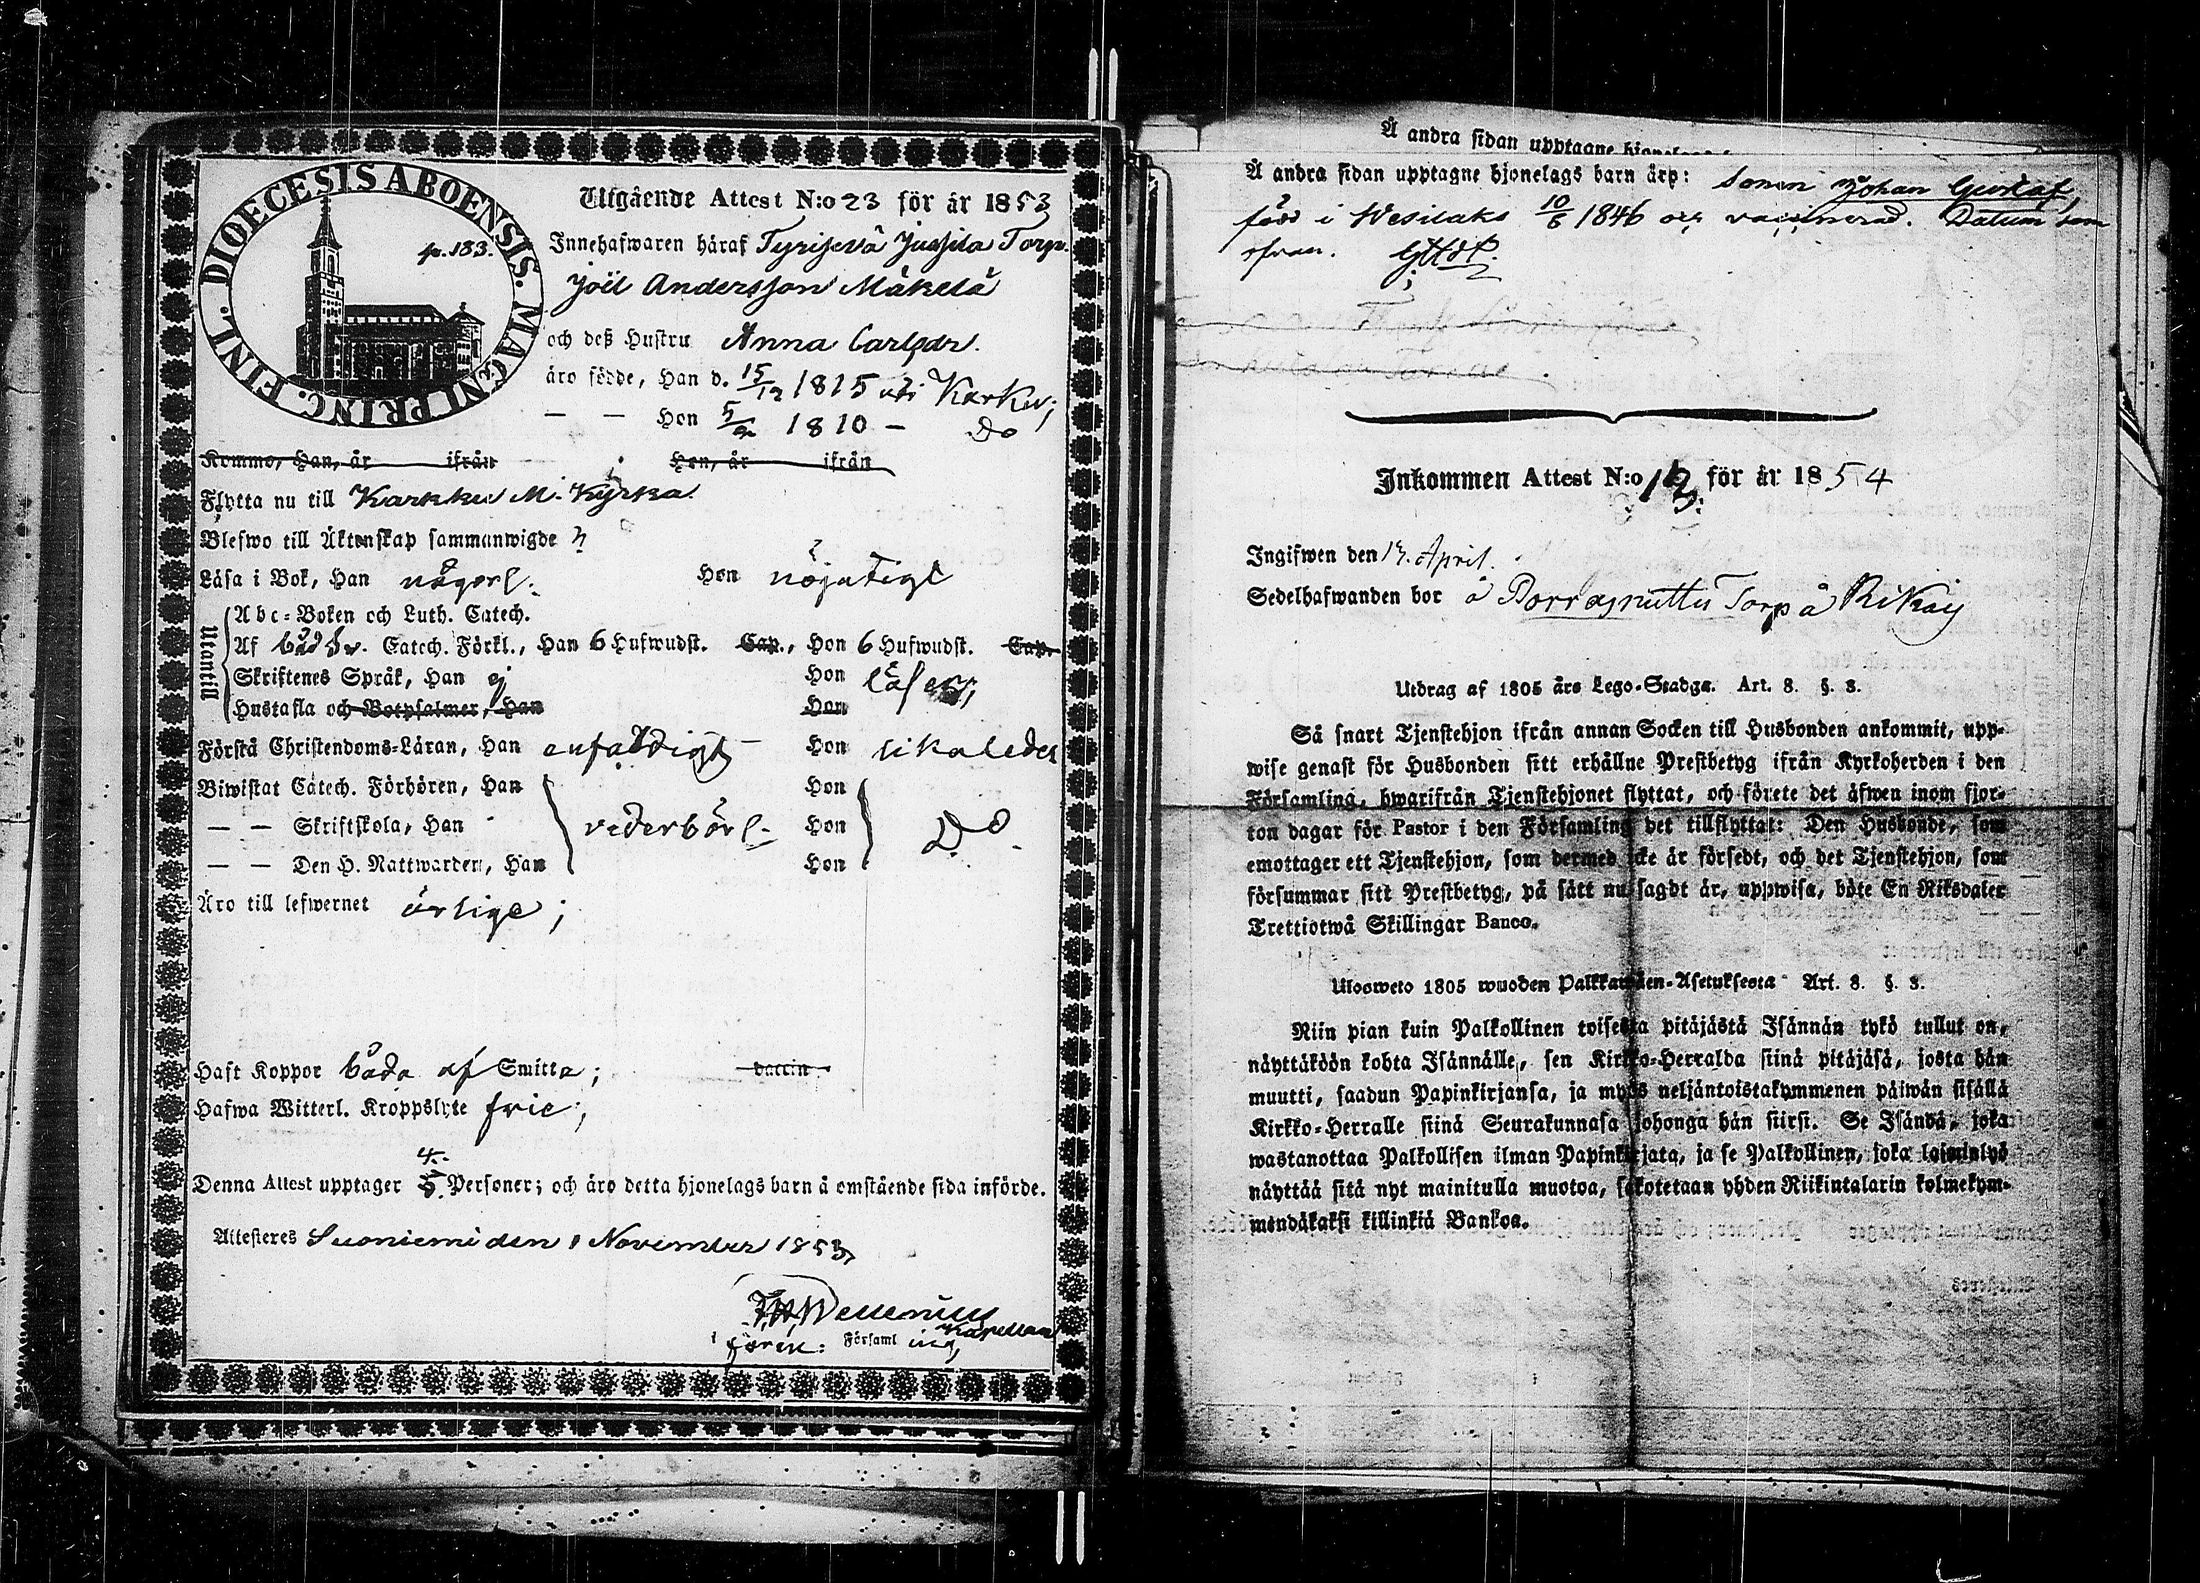 DIOECESIS ABOENSIS. MAGNI PRINC. FINL.
p. 183.
Utgående Attest N:o 23 för år 1853
Innehafwaren häraf Tyrisevä Jussila Torp.
Joël Andersson Mäkelä
och deß Hustru Anna Carlsdr.
äro födde, Han d. 15/12 1815 uti Karku;
— — Hon 5/2 1810 — Do
Kommo, Han, år ifrån Hon, år ifrån
Flytta nu till Karkku M. Kyrka.
Blefwo till Äktenskap sammanwigde ?
Läsa i Bok, Han någorl. Hon nöjaktigt
Utantill
Abc-Boken och Luth. Catech.
Af båd Sv. Catech. Förkl., Han 6 Hufwudst. Cap., Hon 6 Hufwudst. Cap.
Skriftenes Språk, Han ej Hon läser;
Hustafla och Botpsalmer, Han Hon
Förstå Christendoms-Läran, Han enfaldigt Hon likaledes
Biwistat Catech. Förhören, Han Hon
— — Skriftskola, Han vederbörl. Hon Do
— — Den H. Nattwarden, Han Hon
Äro till lefwernet ärlige;
Haft Koppor båda af Smitta; vaccin
Hafwa Witterl. Kroppslyte frie;
4.
Denna Attest upptager 5. Personer; och äro detta hjonelags barn å omstående sida införde.
Attesteres Suoniemi den 1 November 1853
Kapellan
i fören: Församl ing
Å andra sidan upptagne hjonelags
Å andra sidan upptagne hjonelags barn äro: Sonen Johan Gustaf,
född i Wesilaks 10/6 1846 och vaccinerad. Datum som
ofvan.
Inkommen Attest N:o 13 för år 1854
Ingifwen den 13. April.
Sedelhafwanden bor å Torp å
Utdrag af 1805 års Lego-Stadga. Art. 8. §. 3.
Så snart Tjenstehjon ifrån annan Socken till Husbonden ankommit, upp-
wise genast för Husbonden sitt erhållne Prestbetyg ifrån Kyrkoherden i den
Församling, hwarifrån Tjenstehjonet flyttat, och förete det äfwen inom fjor-
ton dagar för Pastor i den Församling det tillflyttat: Den Husbonde, som
emottager ett Tjenstehjon, som dermed icke är försedt, och det Tjenstehjon, som
försummar sitt Prestbetyg, på sätt nu sagdt är, uppwisa, böte En Riksdaler
Trettiotwå Skillingar Banco.
Ulosweto 1805 wuoden Palkkawäen-Asetuksesta Art. 8. §. 3.
Niin pian kuin Palkollinen toisesta pitäjästä Isännän tykö tullut on,
näyttäköön kohta Isännälle, sen Kirkko-Herralda siinä pitäjäsä, josta hän
muutti, saadun Papinkirjansa, ja myös neljäntoistakymmenen päiwän sisällä
Kirkko-Herralle siinä Seurakunnasa johonga hän siirsi. Se Isändä, joka
wastanottaa Palkollisen ilman Papinkirjata, ja se Palkollinen, joka laiminlyö
näyttää sitä nyt mainitulla muotoa, sakotetaan yhden Riikintalarin kolmekym-
mendäkaksi killinkiä Bankoa.